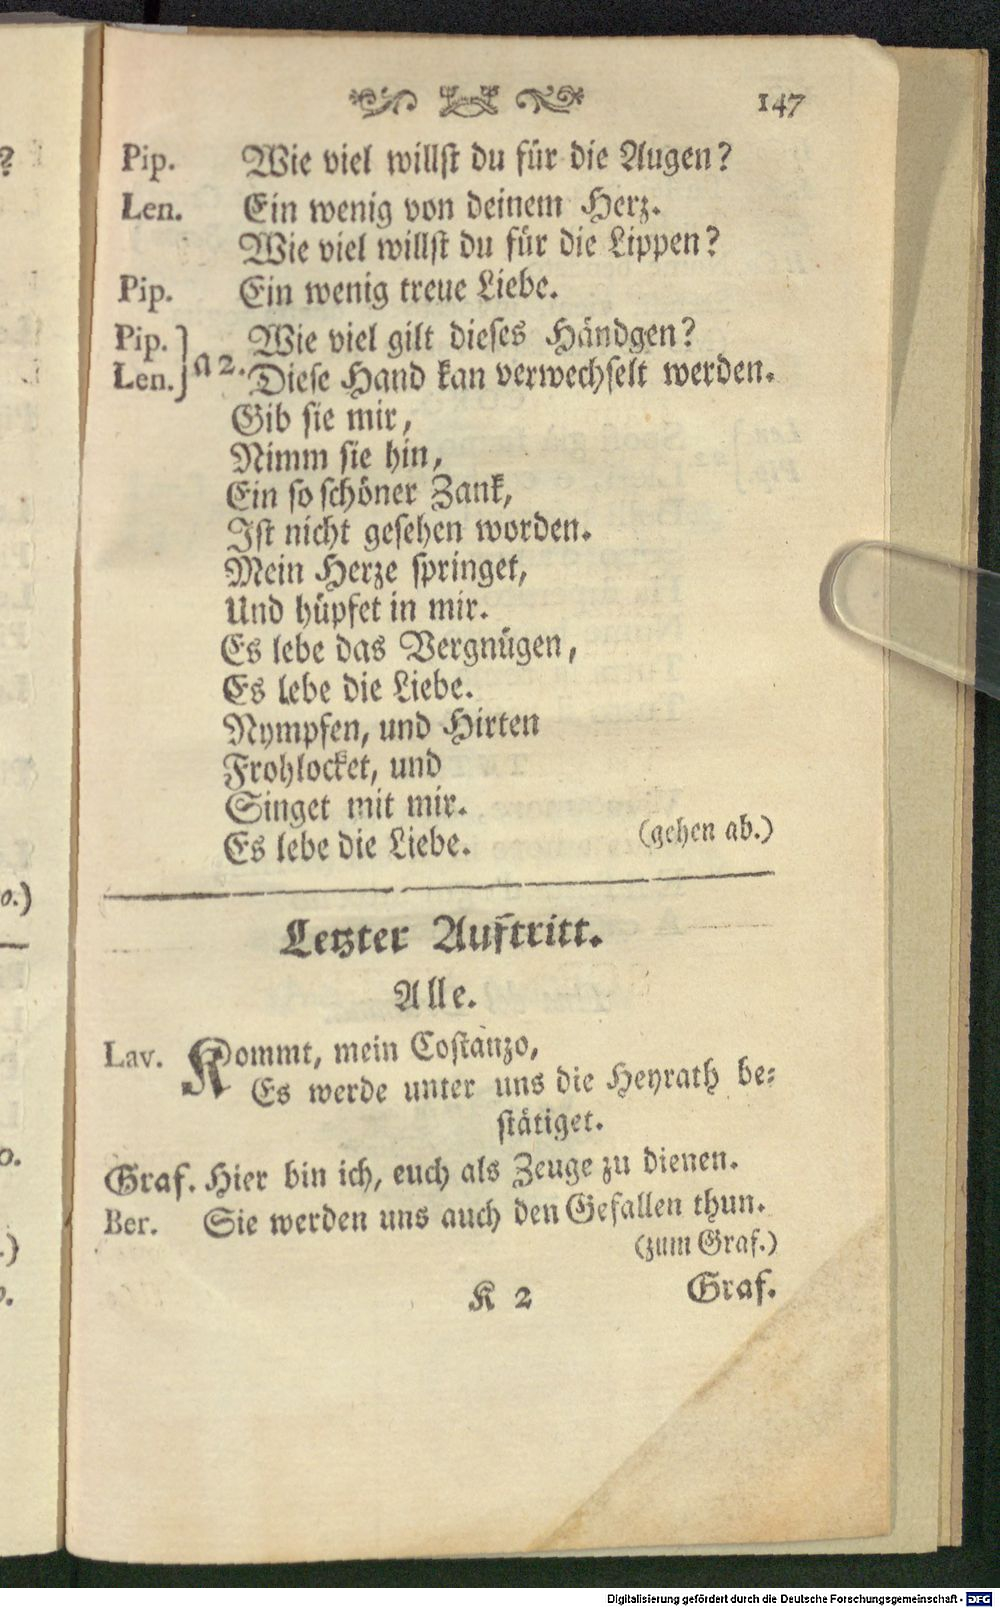 147
Pip. Wie viel willst du für die Augen?
Len. Ein wenig von deinem Herz.
Wie viel willst du für die Lippen?
Pip. Ein wenig treue Liebe.
Pip. Wie viel gilt dieses Händgen?
Len. a 2. Diese Hand kan verwechselt werden.
Gib sie mir,
Nimm sie hin,
Ein so schöner Zank,
Ist nicht gesehen worden.
Mein Herze springet,
Und hüpfet in mir.
Es lebe das Vergnügen,
Es lebe die Liebe.
Nympfen, und Hirten
Frohlocket, und
Singet mit mir.
Es lebe die Liebe. (gehen ab.)
Letzter Auftritt.
Alle.
Lav. Kommt, mein Costanzo,
Es werde unter uns die Heyrath be=
stätiget.
Graf. Hier bin ich, euch als Zeuge zu dienen.
Ber. Sie werden uns auch den Gefallen thun.
(zum Graf.)
K 2 Graf.
Digitalisierung gefördert durch die Deutsche Forschungsgemeinschaft - DFG